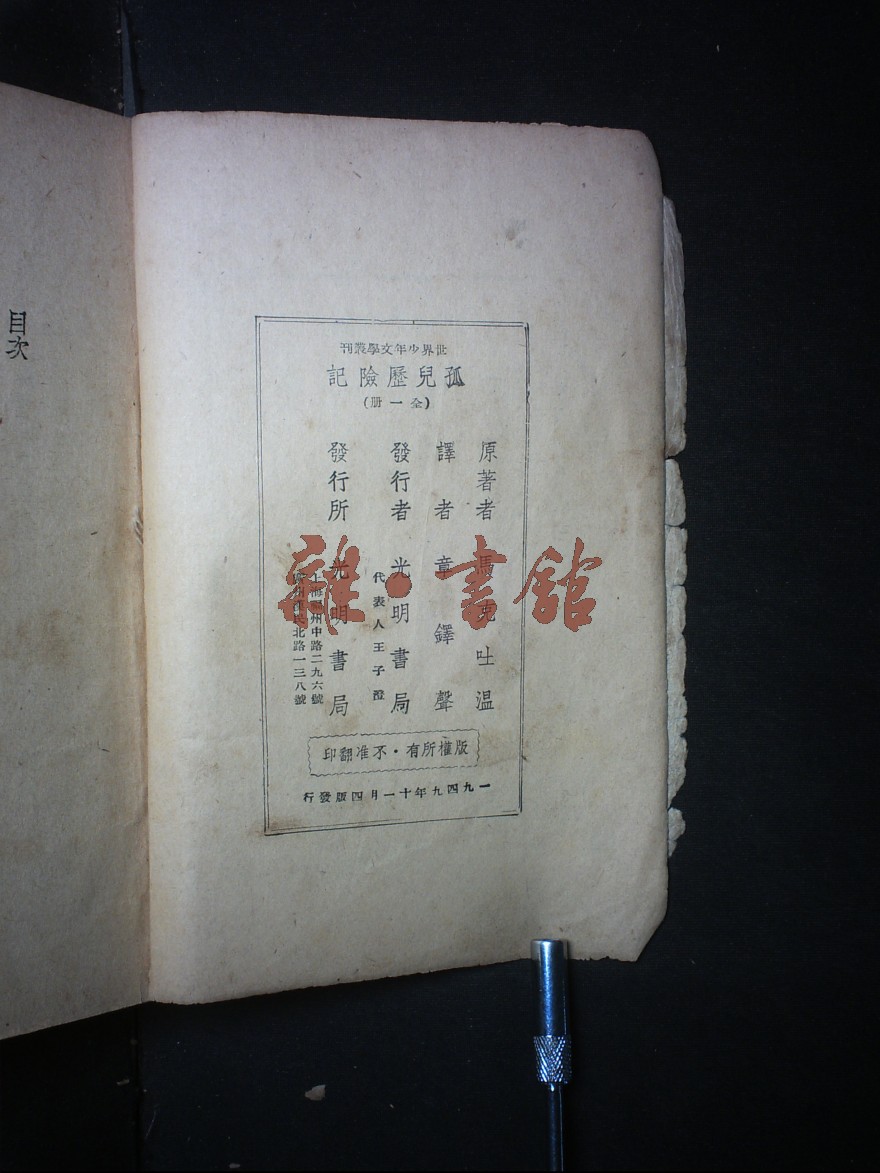 世界少年文學叢刊
孤兒歷險記
(全一冊)
原著者 馬克吐温
譯者 章鐸聲
發行者 光明書局
代表人王子澄
發行所 光明書局
上海福州中路二九六號
廣州漢民北路一三八號
版權所有・不准翻印
一九四九年十一月四版發行
目次
雜・書館